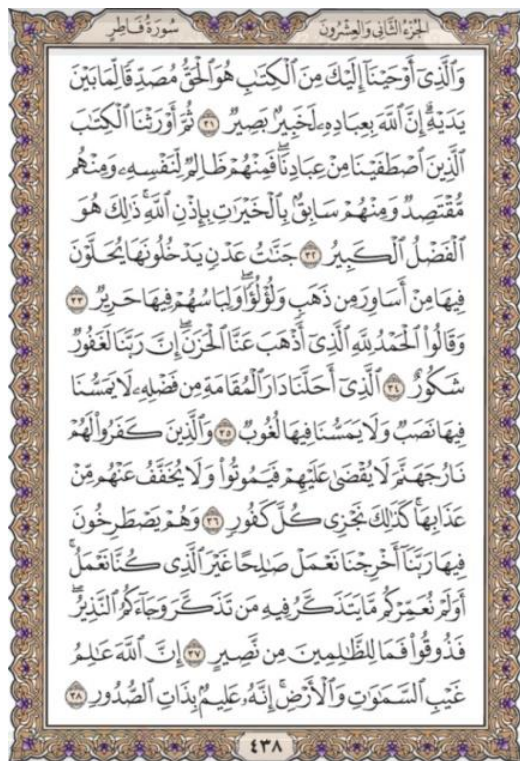 الجزء الثاني والعشرون سورة فاطر
وَالَّذِىٓ أَوْحَيْنَآ إِلَيْكَ مِنَ ٱلْكِتَٰبِ هُوَ ٱلْحَقُّ مُصَدِّقًا لِّمَا بَيْنَ
يَدَيْهِۗ إِنَّ ٱللَّهَ بِعِبَادِهِۦ لَخَبِيرٌۢ بَصِيرٌ ٣١ ثُمَّ أَوْرَثْنَا ٱلْكِتَٰبَ
ٱلَّذِينَ ٱصْطَفَيْنَا مِنْ عِبَادِنَاۖ فَمِنْهُمْ ظَالِمٌ لِّنَفْسِهِۦ وَمِنْهُم
مُّقْتَصِدٌ وَمِنْهُمْ سَابِقٌۢ بِٱلْخَيْرَٰتِ بِإِذْنِ ٱللَّهِۚ ذَٰلِكَ هُوَ
ٱلْفَضْلُ ٱلْكَبِيرُ ٣٢ جَنَّٰتُ عَدْنٍ يَدْخُلُونَهَا يُحَلَّوْنَ
فِيهَا مِنْ أَسَاوِرَ مِن ذَهَبٍ وَلُؤْلُؤًاۖ وَلِبَاسُهُمْ فِيهَا حَرِيرٌ ٣٣
وَقَالُوا۟ ٱلْحَمْدُ لِلَّهِ ٱلَّذِىٓ أَذْهَبَ عَنَّا ٱلْحَزَنَۖ إِنَّ رَبَّنَا لَغَفُورٌ
شَكُورٌ ٣٤ ٱلَّذِىٓ أَحَلَّنَا دَارَ ٱلْمُقَامَةِ مِن فَضْلِهِۦ لَا يَمَسُّنَا
فِيهَا نَصَبٌ وَلَا يَمَسُّنَا فِيهَا لُغُوبٌ ٣٥ وَٱلَّذِينَ كَفَرُوا۟ لَهُمْ
نَارُ جَهَنَّمَ لَا يُقْضَىٰ عَلَيْهِمْ فَيَمُوتُوا۟ وَلَا يُخَفَّفُ عَنْهُم مِّنْ
عَذَابِهَاۚ كَذَٰلِكَ نَجْزِى كُلَّ كَفُورٍ ٣٦ وَهُمْ يَصْطَرِخُونَ
فِيهَا رَبَّنَآ أَخْرِجْنَا نَعْمَلْ صَٰلِحًا غَيْرَ ٱلَّذِى كُنَّا نَعْمَلُۚ
أَوَلَمْ نُعَمِّرْكُم مَّا يَتَذَكَّرُ فِيهِ مَن تَذَكَّرَ وَجَآءَكُمُ ٱلنَّذِيرُۖ
فَذُوقُوا۟ فَمَا لِلظَّٰلِمِينَ مِن نَّصِيرٍ ٣٧ إِنَّ ٱللَّهَ عَٰلِمُ
غَيْبِ ٱلسَّمَٰوَٰتِ وَٱلْأَرْضِۚ إِنَّهُۥ عَلِيمٌۢ بِذَاتِ ٱلصُّدُورِ ٣٨
٤٣٨